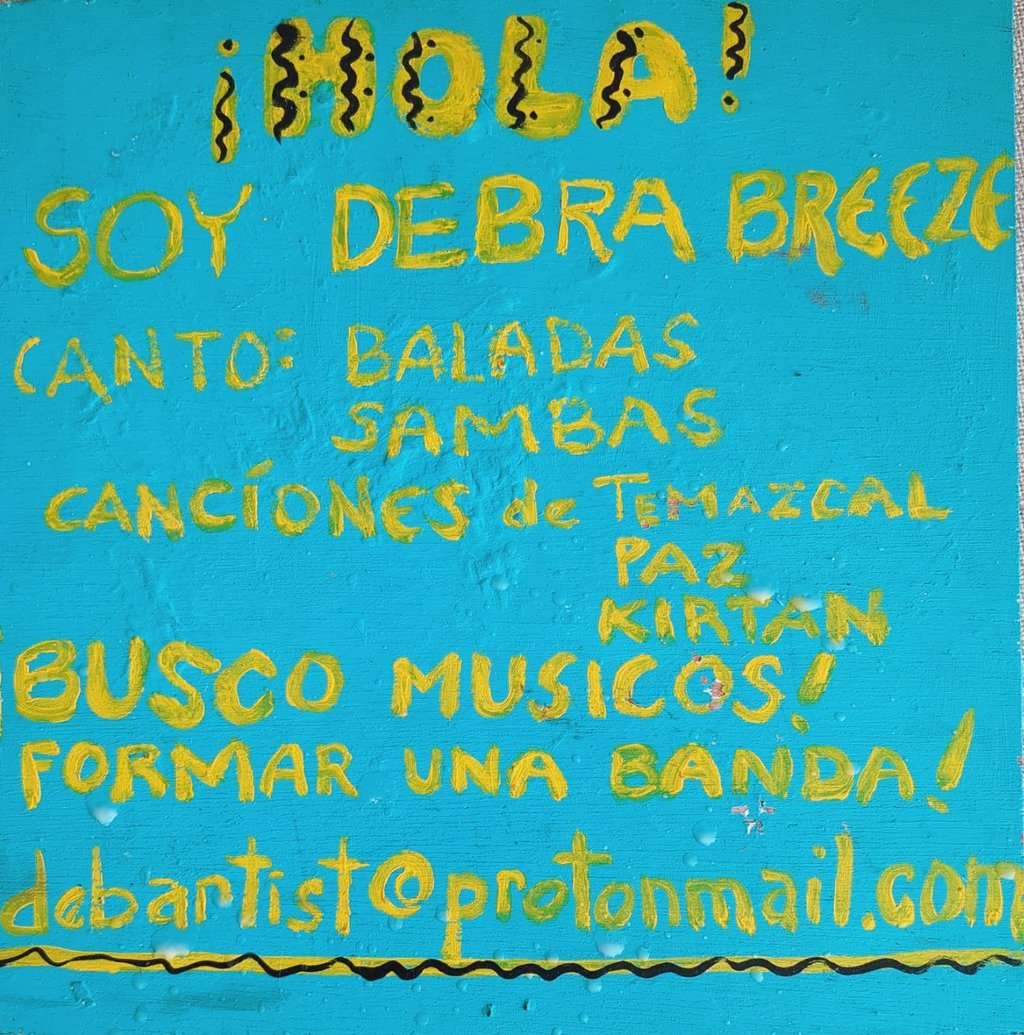 ¡HOLA!
SOY DEBRA BREEZE
CANTO: BALADAS
SAMBAS
CANCÍONES de TEMAZCAL
PAZ
KIRTAN
BUSCO MUSICOS!
FORMAR UNA BANDA!
debartist@protonmail.com